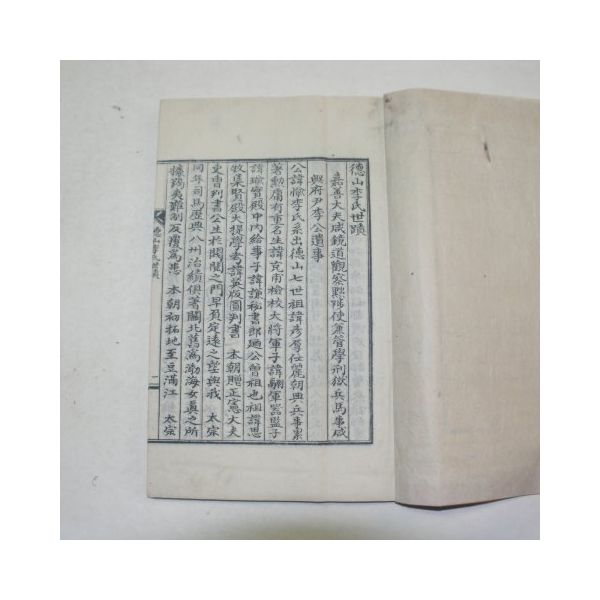 德山李氏世蹟
嘉善大夫咸鏡道觀察黜陟使兼管學刑獄兵馬事咸
興府尹李公遺事
公諱愉李氏系出德山七世祖諱彦厚仕麗朝典兵事累
著勳庸有重名生諱克甫檢校大將軍子諱翮軍器監子
諱瑜寶殿中內給事子諱謙秘書郎廻公曾祖也祖諱思
牧集賢殿大提學考諱英版圖判書 本朝贈正憲大夫
吏曹判書公生於閥閱之門早負定遠之望與我 太宗
同年司馬歷典八州治績俱著關北舊爲渤海女眞之所
據獷夷難制反覆爲患 本朝初拓地至豆滿江 太宗
德山李氏世蹟 一